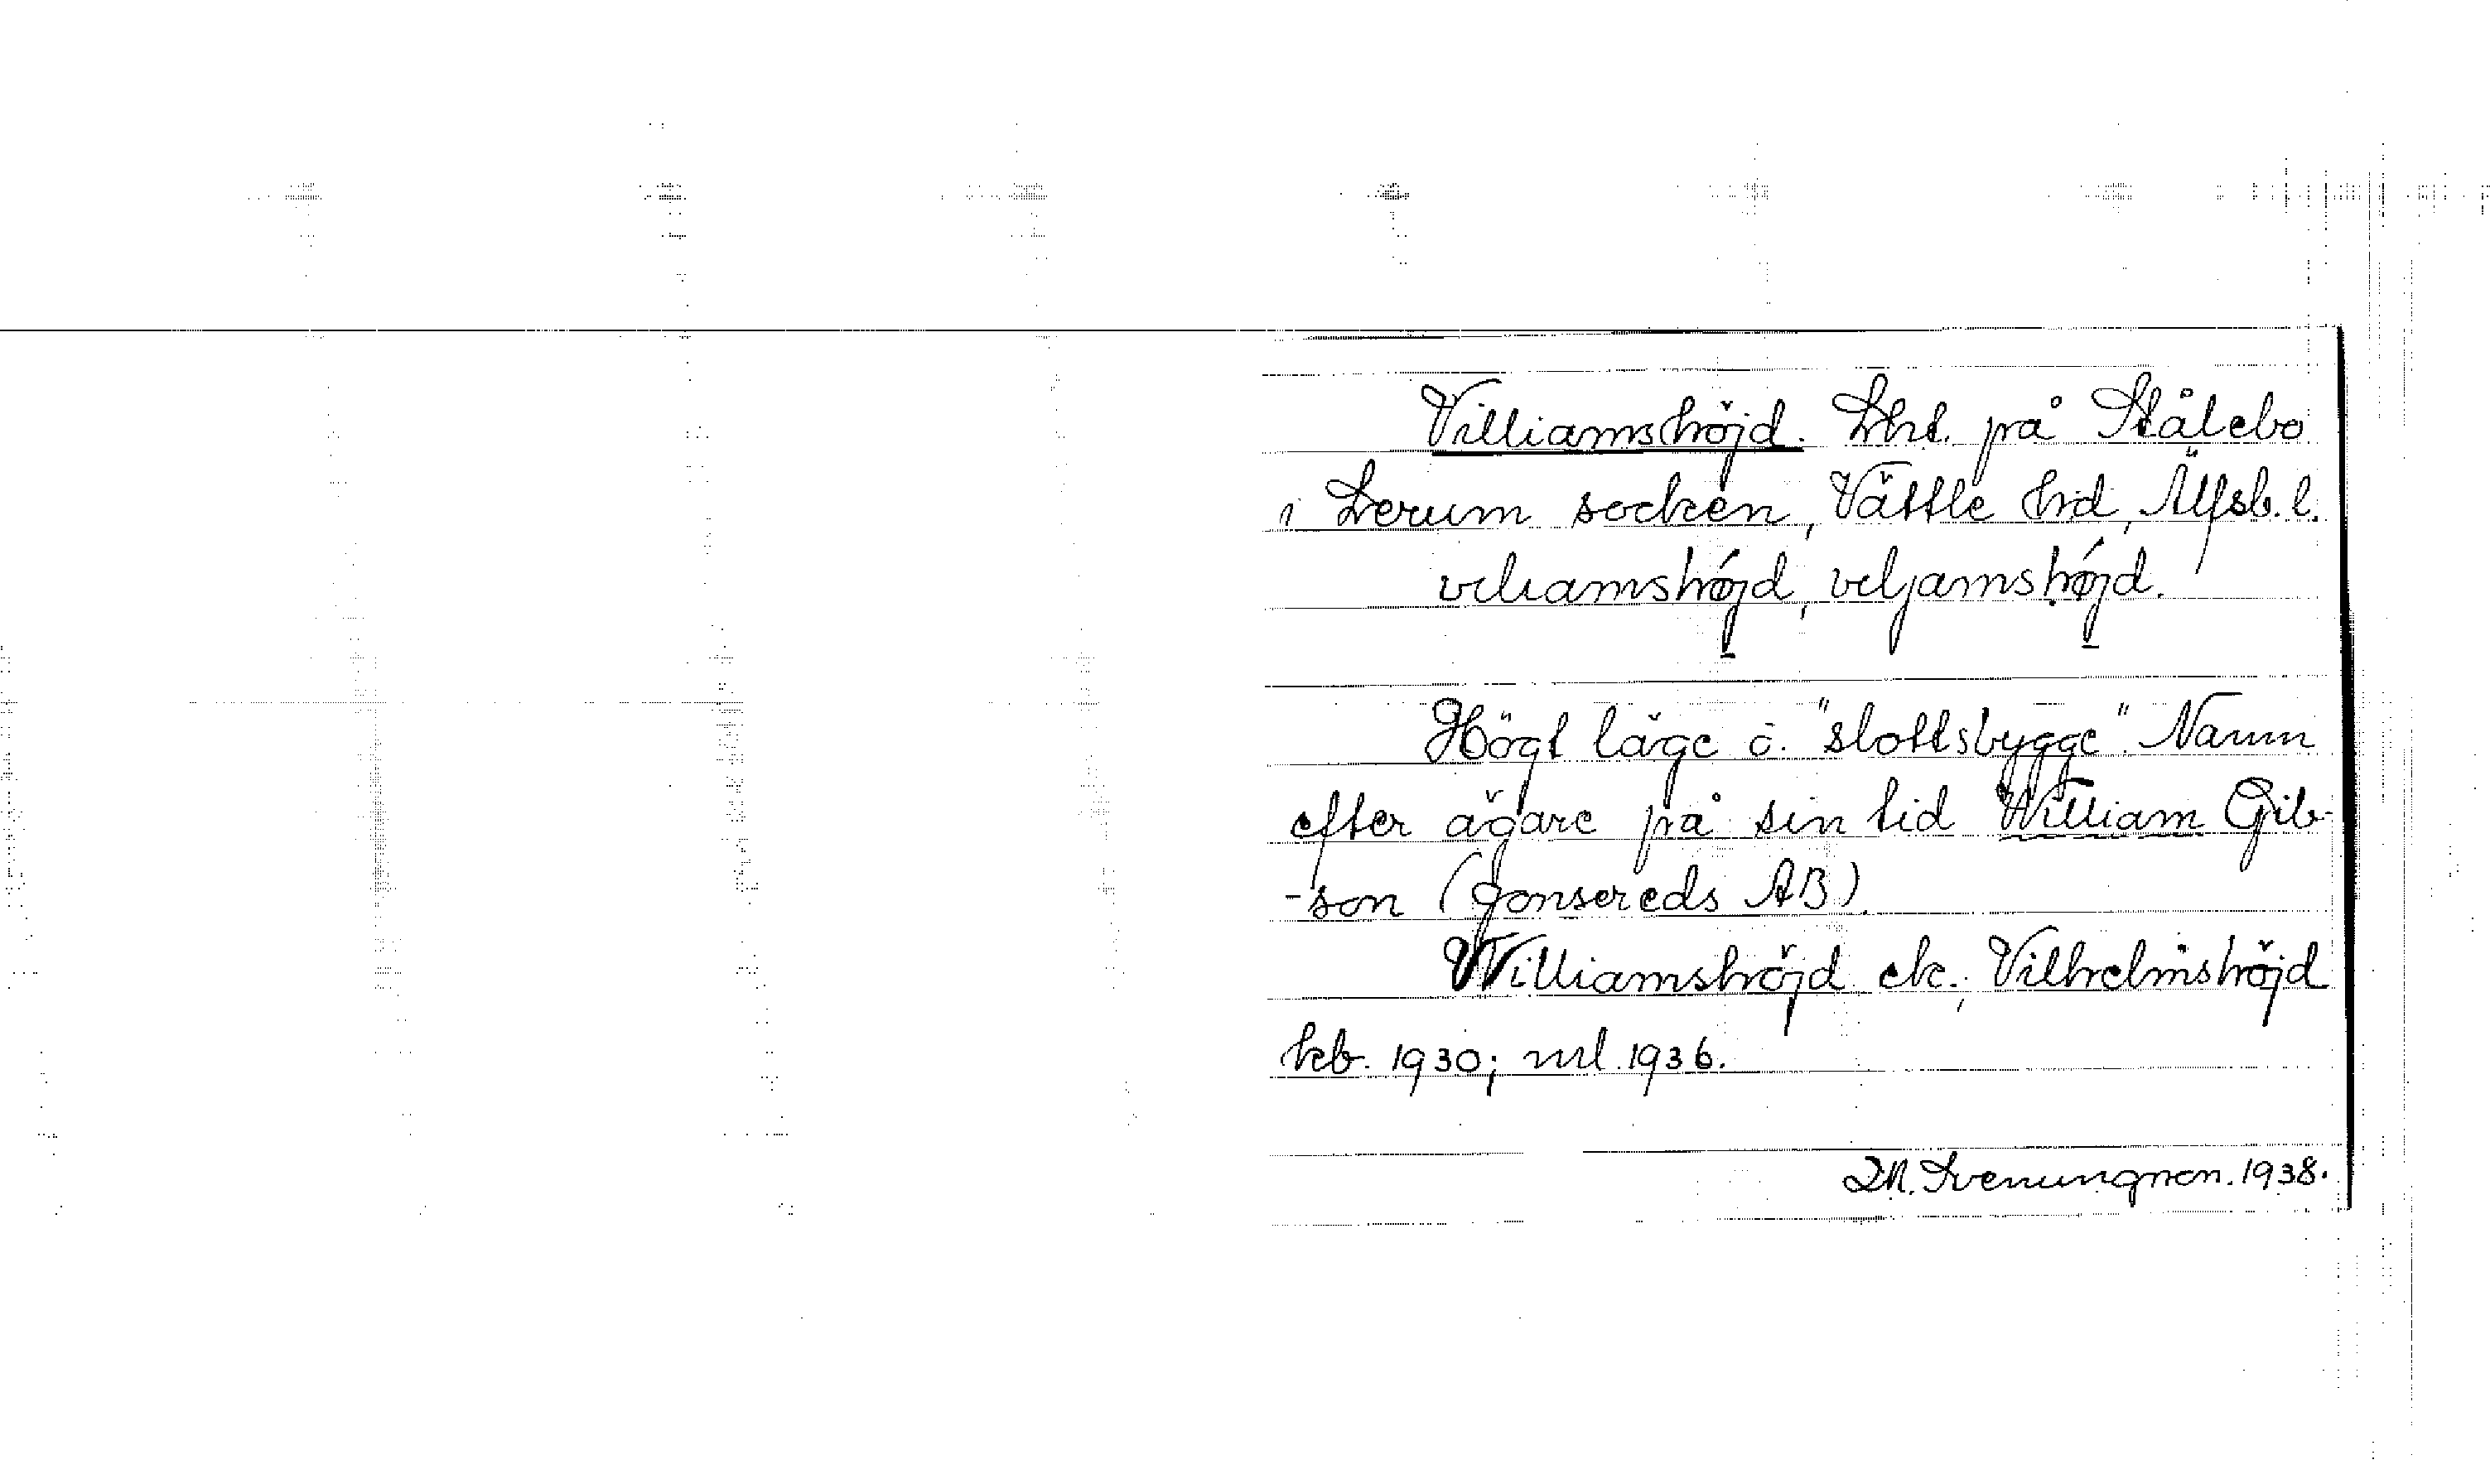 Villiamshöjd. Lht. på Stålebo
i Lerum socken, Vättle hd, Älfsb. l.
veliamshöjd, veljamshöjd.
Högt läge o. "slottsbygge". Namn
efter ägare på sin tid William Gib-
-son (Jonsereds AB).
Williamshöjd ek.; Vilhelmshöjd
kb. 1930; ml 1936.
Svenungson. 1938.